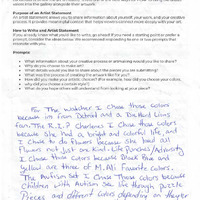 the gallery alongside their artwork.
Purpose of an Artist Statement
An artist statement allows you to share information about yourself, your work, and your creative
process. It provides meaningful context that helps viewers connect more deeply with your art.
How to Write and Artist Statement
If you already know what you'd like to write, go ahead! If you need a starting point or prefer a
prompt, consider the ideas below. We recommend responding to one or two prompts that
resonate with you.
Prompts
What information about your creative process or meaning would you like to share?
Why do you choose to make art?
What details would you like to share about the pieces you are submitting?
What was the process of creating the artwork like for you?
How did you make your artistic choices? (For example, how did you choose your colors,
why did you choose a certain topic?)
What do you hope others will understand from looking at your piece?
For The I chose these colors
because im from Detroit and a Die Hard Lions
fan. The R.I.P Charlene I chose those colors
because she had a bright and colorful life, and
I chose to do flowers because she had all
flowers
I chose those colors because Black Blue and
Yellow are three of M. Ali Favorite colors.
The Autism set I chose Those colors because
Children with Autism see life through puzzle
Pieces and different colors depending on